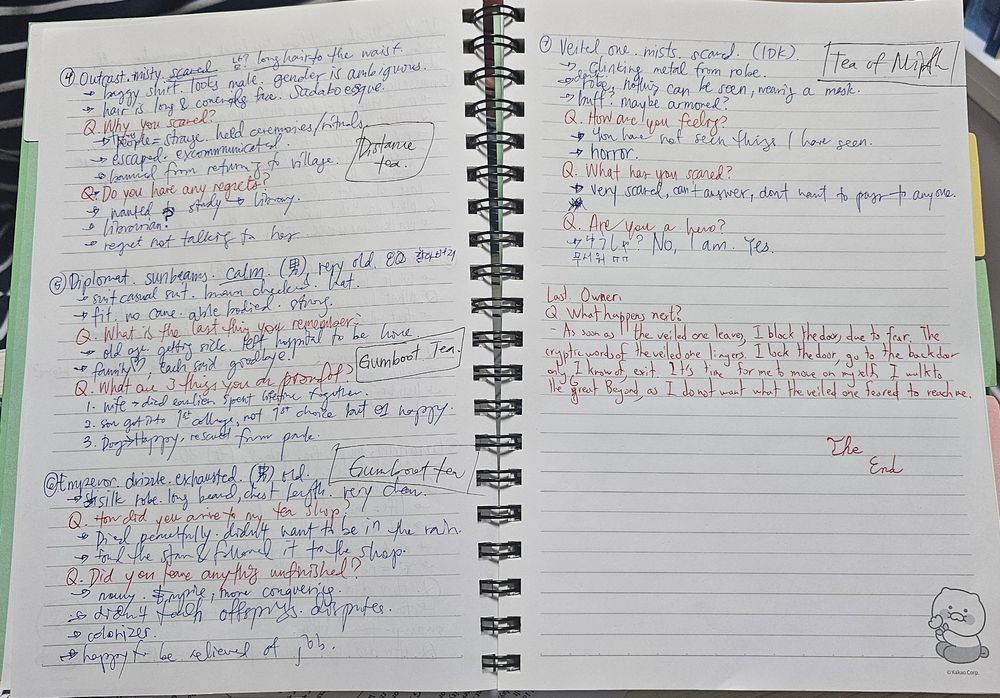 ④ Outcast. misty. scared 너? long hair to the waist.
→ baggy shirt. looks male. gender is ambiguous.
→ hair is long & covering face. Sadako esque.
Q. Why you scared?
→ People = strange. held ceremonies/rituals.
→ escaped. excommunicated.
→ banned from return'g to village.
Distance tea.
Q. Do you have any regrets?
→ wanted to study → library.
→ librarian?
→ regret not talking to her
⑤ Diplomat. sunbeams. calm. (男), very old.
→ suit casual suit. brown checkered. hat.
→ fit. no cane. able bodied. strong.
Q. What is the last thing you remember?
→ old age, getting sick. left hospital to be home
→ family♡, each said goodbye!
Gumboot Tea.
Q. What are 3 things you are proud of?
1. wife → died earlier. spent lifetime together.
2. son got into 1st college, not 1st choice but happy.
3. Dog → Happy, rescued from park.
⑥ Emperor. drizzle. exhausted. (男) old.
Gumboot tea
→ silk robe. long beard, chest length. very clean.
Q. How did you arrive to my tea shop?
→ Died peacefully. didn't want to be in the rain.
→ found the stairs & followed it to the shop.
Q. Did you leave anything unfinished?
→ many. Empire, more conquering.
→ didn't teach offsprings. disputes.
→ colonizer.
→ happy to be relieved of job.
⑦ Veiled one. mists. scared. (IDK).
Tea of
→ Clinking metal from robe.
→ robe, nothing can be seen, wearing a mask.
→ buff. maybe armored?
Q. How are you feeling?
→ You have not seen things I have seen.
→ horror.
Q. What has you scared?
→ very scared, can't answer, don't want to pass to anyone.
Q. Are you a hero?
→ No, I am. Yes.
무서워 ㅠㅠ
Last Owner.
Q. What happens next?
- As soon as the veiled one leaves, I block the door due to fear. The
cryptic words of the veiled one lingers. I lock the door, go to the backdoor
only I know of, exit. It's time for me to move on myself. I walk to
the Great Beyond as I do not want what the veiled one feared to reach me.
The
End
© Kakao Corp.